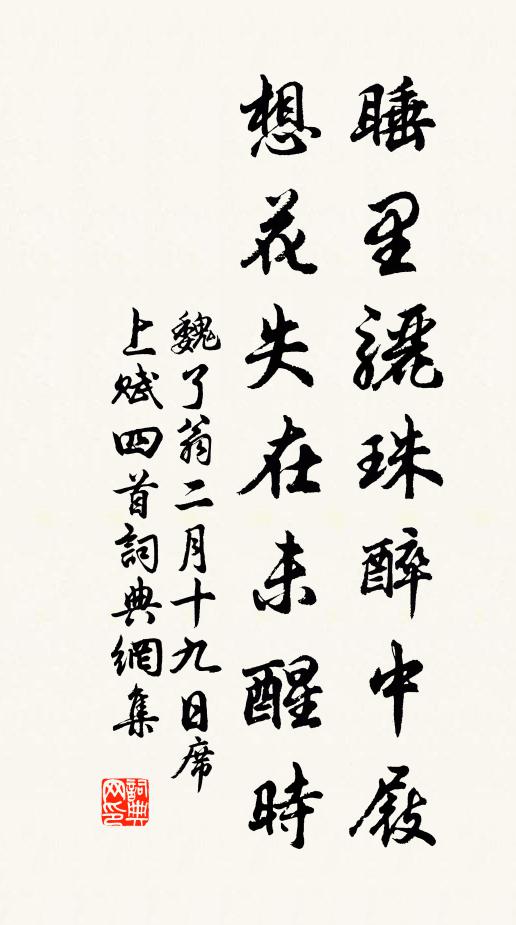 睡里驪珠醉中屐
想花失在未醒時
魏了翁二月十九日席
上賦四首詞典網集
詞典
网印